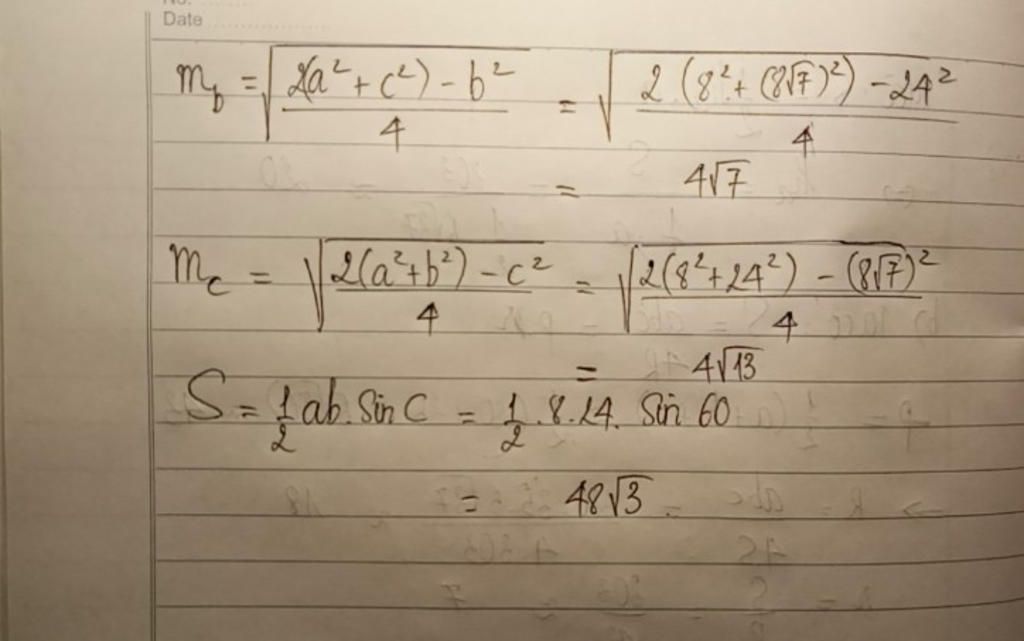 No: ..........
Date ..................
m_b = √((2(a² + c²) - b²)/4) = √((2.(8² + (8√7)²) - 24²)/4)
= 4√7
m_c = √((2(a² + b²) - c²)/4) = √((2(8² + 24²) - (8√7)²)/4)
= 4√13
S = 1/2 ab. Sin C = 1/2 .8.24. Sin 60
= 48√3.